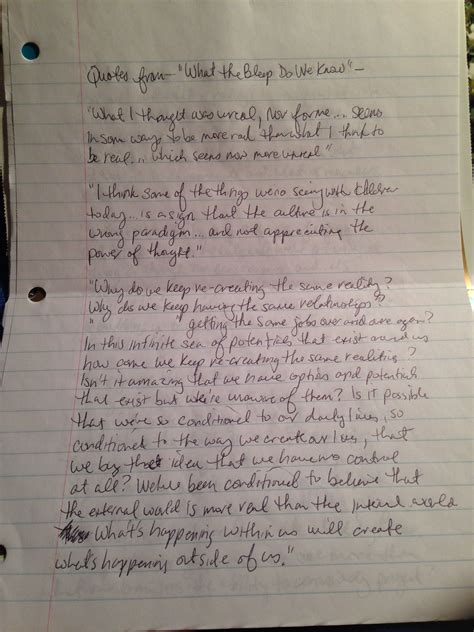 Quotes from - "What the Bleep Do We Know" -
"What I thought was unreal, now for me... seems
in some ways to be more real than what I think to
be real... which seems now more unreal"
"I think some of the things we're seeing with children
today... is a sign that the culture is in the
wrong paradigm... and not appreciating the
power of thought."
"Why do we keep re-creating the same reality?
Why do we keep having the same relationships?
" getting the same jobs over and over again?
In this infinite sea of potentials that exist around us
how come we keep re-creating the same realities?
Isn't it amazing that we have options and potentials
that exist but we're unaware of them? Is it possible
that we're so conditioned to our daily lives, so
conditioned to the way we create our lives, that
we buy the idea that we have no control
at all? We've been conditioned to believe that
the external world is more real than the internal world
What's happening within us will create
what's happening outside of us."